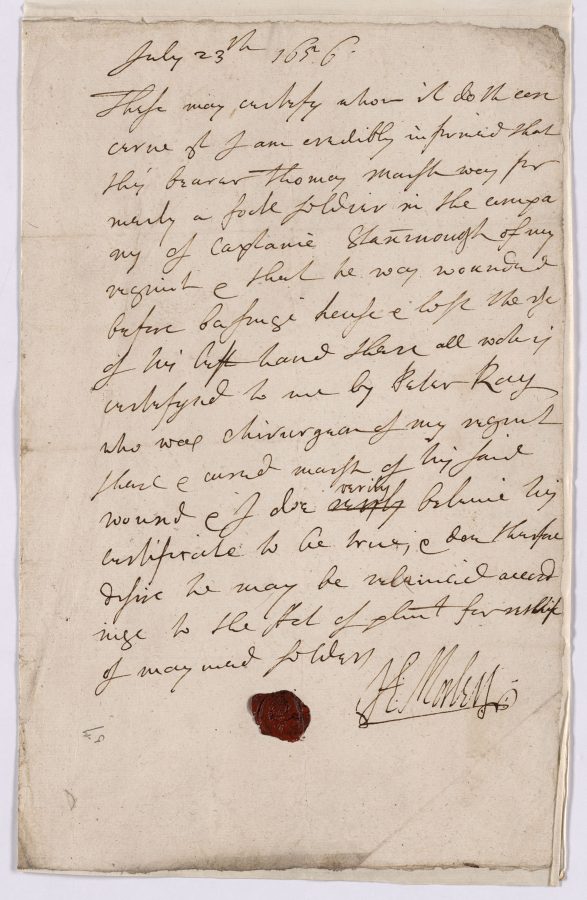 July 23th 1656.
These may certefy whom it doth con
cerne yt I am credibly informed that
this bearer Thomas Marsh was for
merly a foote soldier in the compa
ny of Captaine Stanmough of my
regimt & that he was wounded
before Basinge house & lost the use
of his left hand there all wch is
certefyed to me by Peter Ray
who was chirurgeon of my regimt
there & cured Marsh of his said
wound & I doe verily verily beleive his
certificate to be true, & doe therfore
desire he may be releived accord
inge to the Act of plmt for reliefe
of maymed soldiers
H: Morley